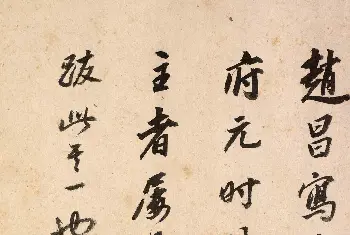 趙昌寫
府元时
主者屬
跋此是一